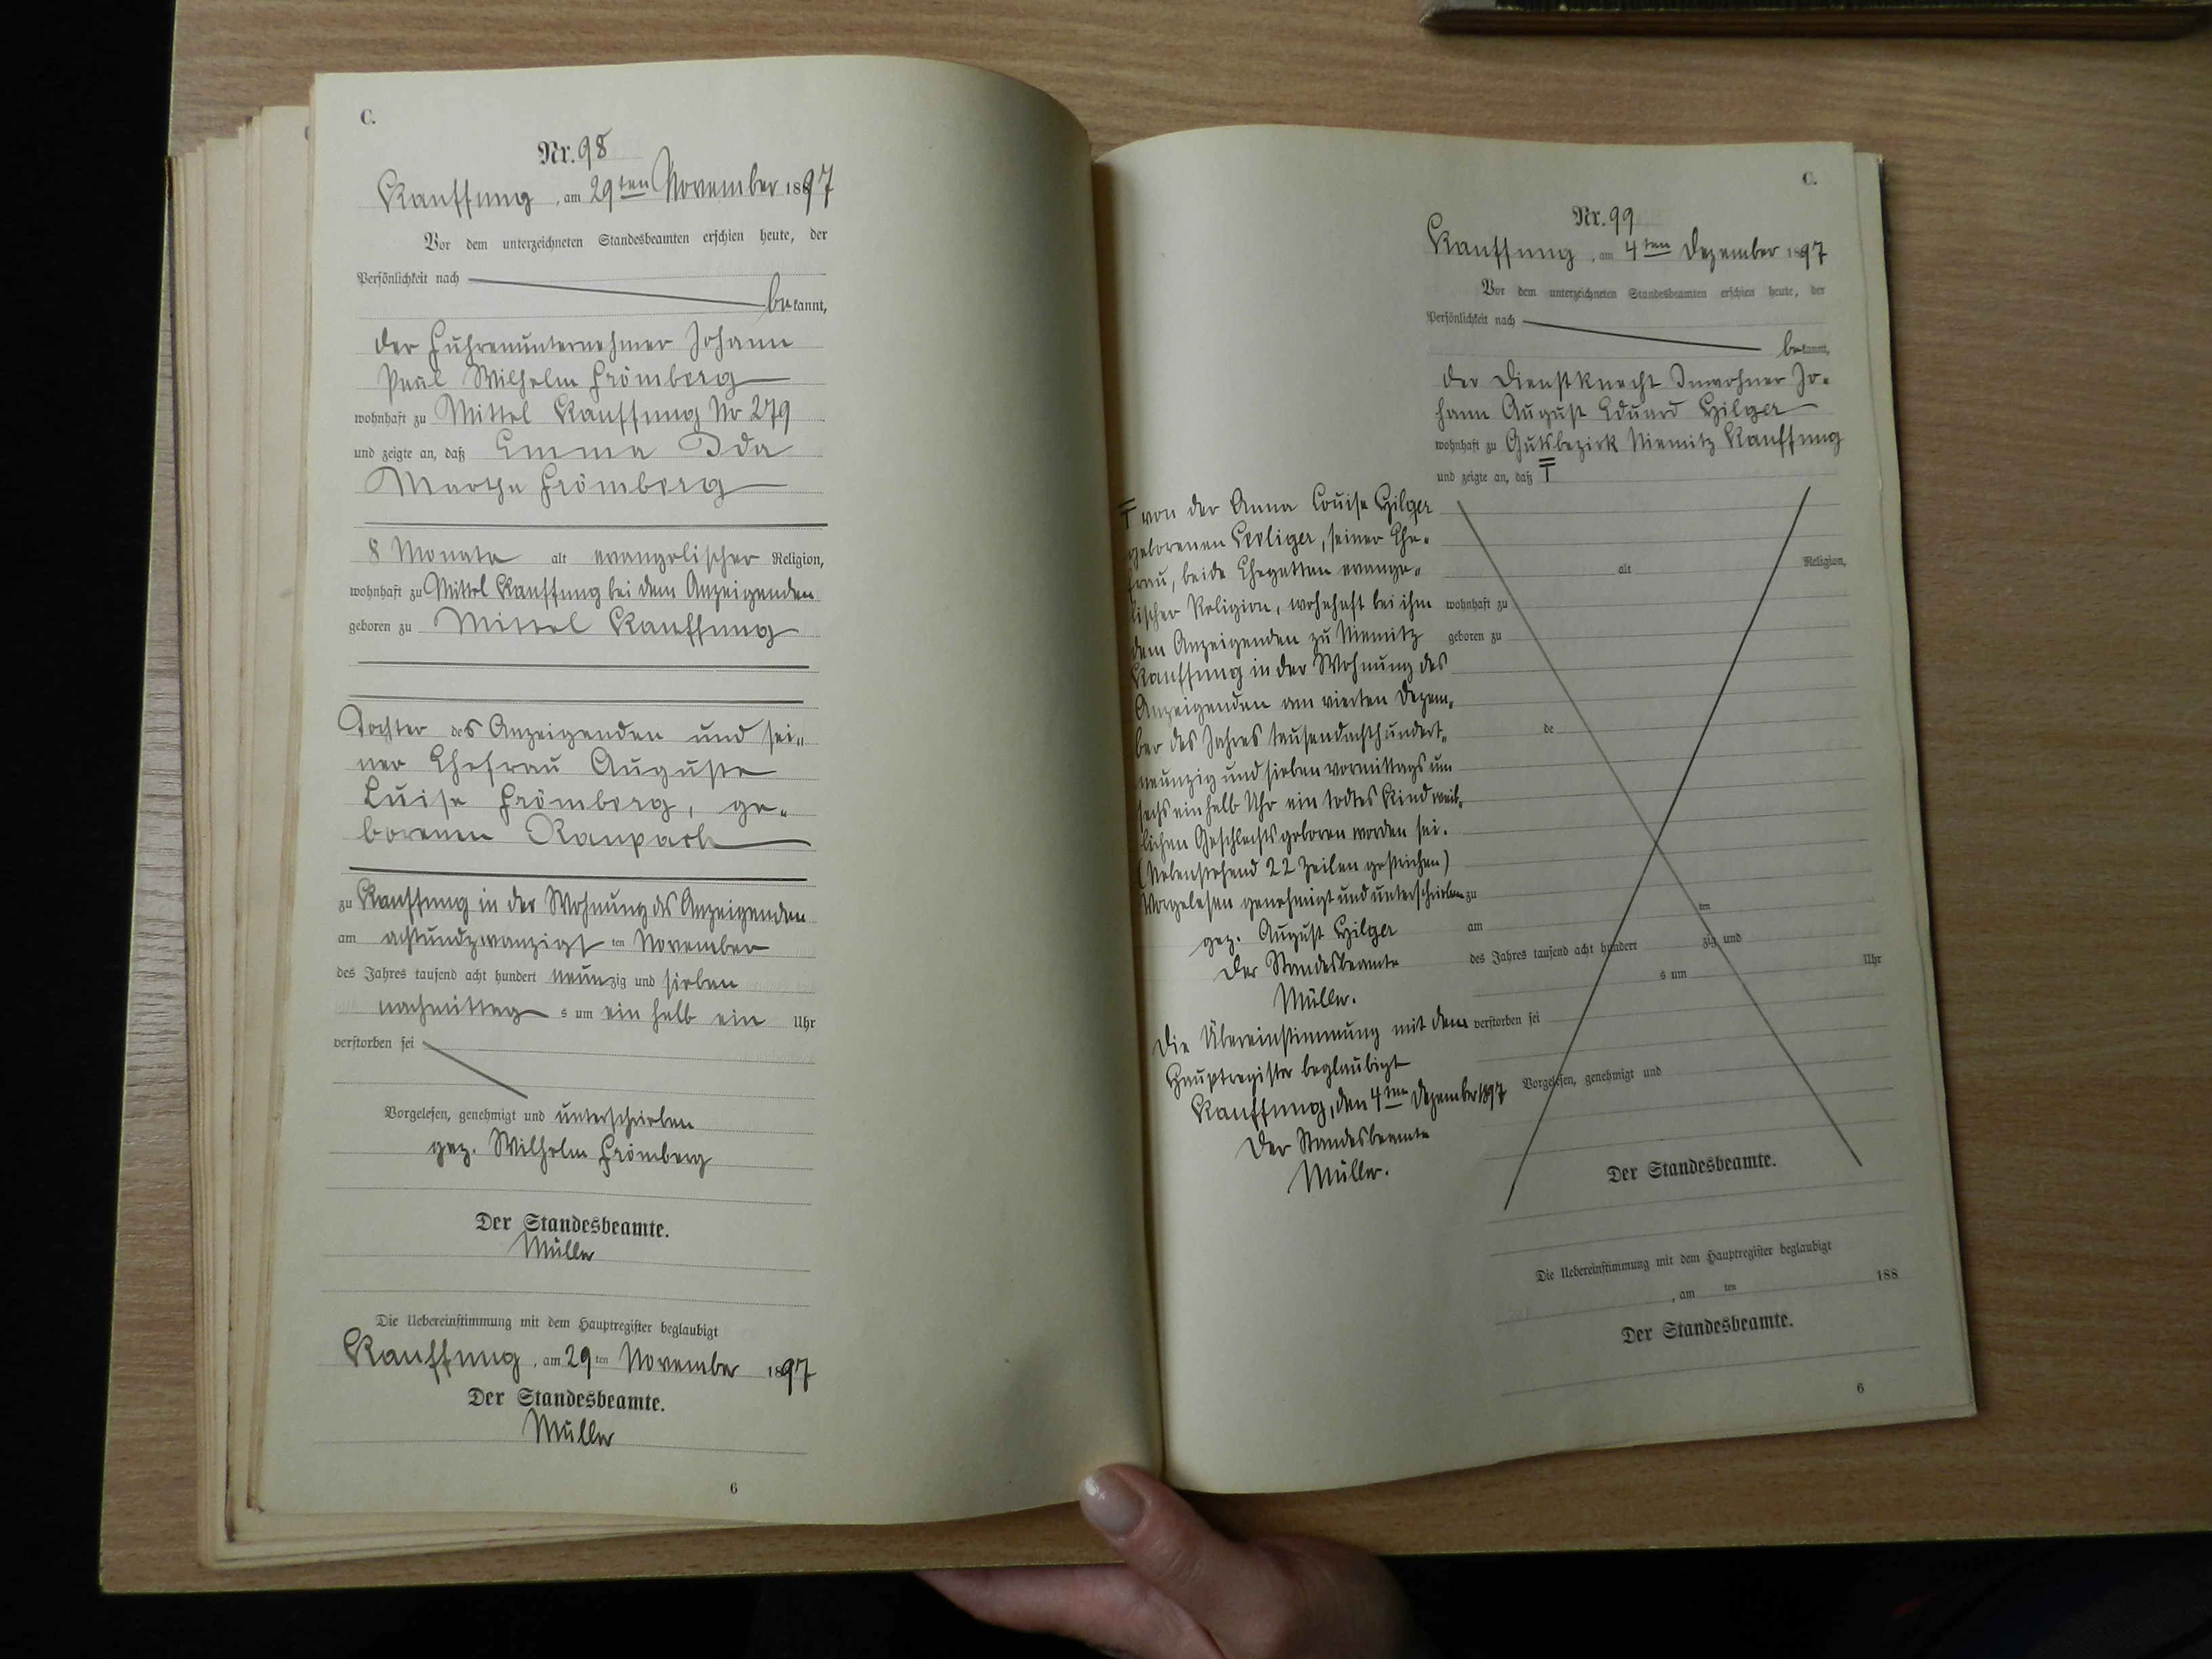 C.
Nr. 98
Kauffung, am 29ten November 1897
Vor dem unterzeichneten Standesbeamten erschien heute, der
Persönlichkeit nach
bekannt,
der Fuhrenunternehmer Johann
Paul Wilhelm Frömberg
wohnhaft zu Mittel Kauffung Nr 279
und zeigte an, daß Emma Ida
Martha Frömberg
8 Monate alt evangelischer Religion,
wohnhaft zu Mittel Kauffung bei dem Anzeigenden
geboren zu Mittel Kauffung
Tochter des Anzeigenden und sei„
ner Ehefrau Auguste
Luise Frömberg, ge„
borenen Raupach
zu Kauffung in der Wohnung des Anzeigenden
am achtundzwanzigsten November
des Jahres tausend acht hundert neunzig und sieben
nachmittags um ein halb ein Uhr
verstorben sei
Vorgelesen, genehmigt und unterschrieben
gez. Wilhelm Frömberg
Der Standesbeamte.
Müller
Die Uebereinstimmung mit dem Hauptregister beglaubigt
Kauffung, am 29ten November 1897
Der Standesbeamte.
Müller
6
C.
Nr. 99
Kauffung, am 4ten Dezember 1897
Vor dem unterzeichneten Standesbeamten erschien heute, der
Persönlichkeit nach
bekannt,
der Dienstknecht Inwohner Jo„
hann August Eduard Hilger
wohnhaft zu Gutsbezirk Niemitz Kauffung
und zeigte an, daß
von der Anna Louise Hilger
geborenen, seiner Ehe„
frau, beide Ehegatten evange„
lischer Religion, wohnhaft bei ihm
dem Anzeigenden zu Niemitz
Kauffung in der Wohnung des
Anzeigenden am vierten Dezem„
ber des Jahres tausendachthundert„
neunzig und sieben vormittags um
sechs einhalb Uhr ein todtes Kind weib„
lichen Geschlechts geboren worden sei.
(Nebenstehend 22 Zeilen gestrichen)
Vorgelesen genehmigt und unterschrieben
gez. August Hilger
Der Standesbeamte
Müller.
Die Übereinstimmung mit dem
Hauptregister beglaubigt
Kauffung, den 4ten Dezember 1897
Der Standesbeamte
Müller.
alt Religion,
wohnhaft zu
geboren zu
de
zu
am ten
des Jahres tausend acht hundert zig und
s um Uhr
verstorben sei
Vorgelesen, genehmigt und
Der Standesbeamte.
Die Uebereinstimmung mit dem Hauptregister beglaubigt
, am ten 188
Der Standesbeamte.
6